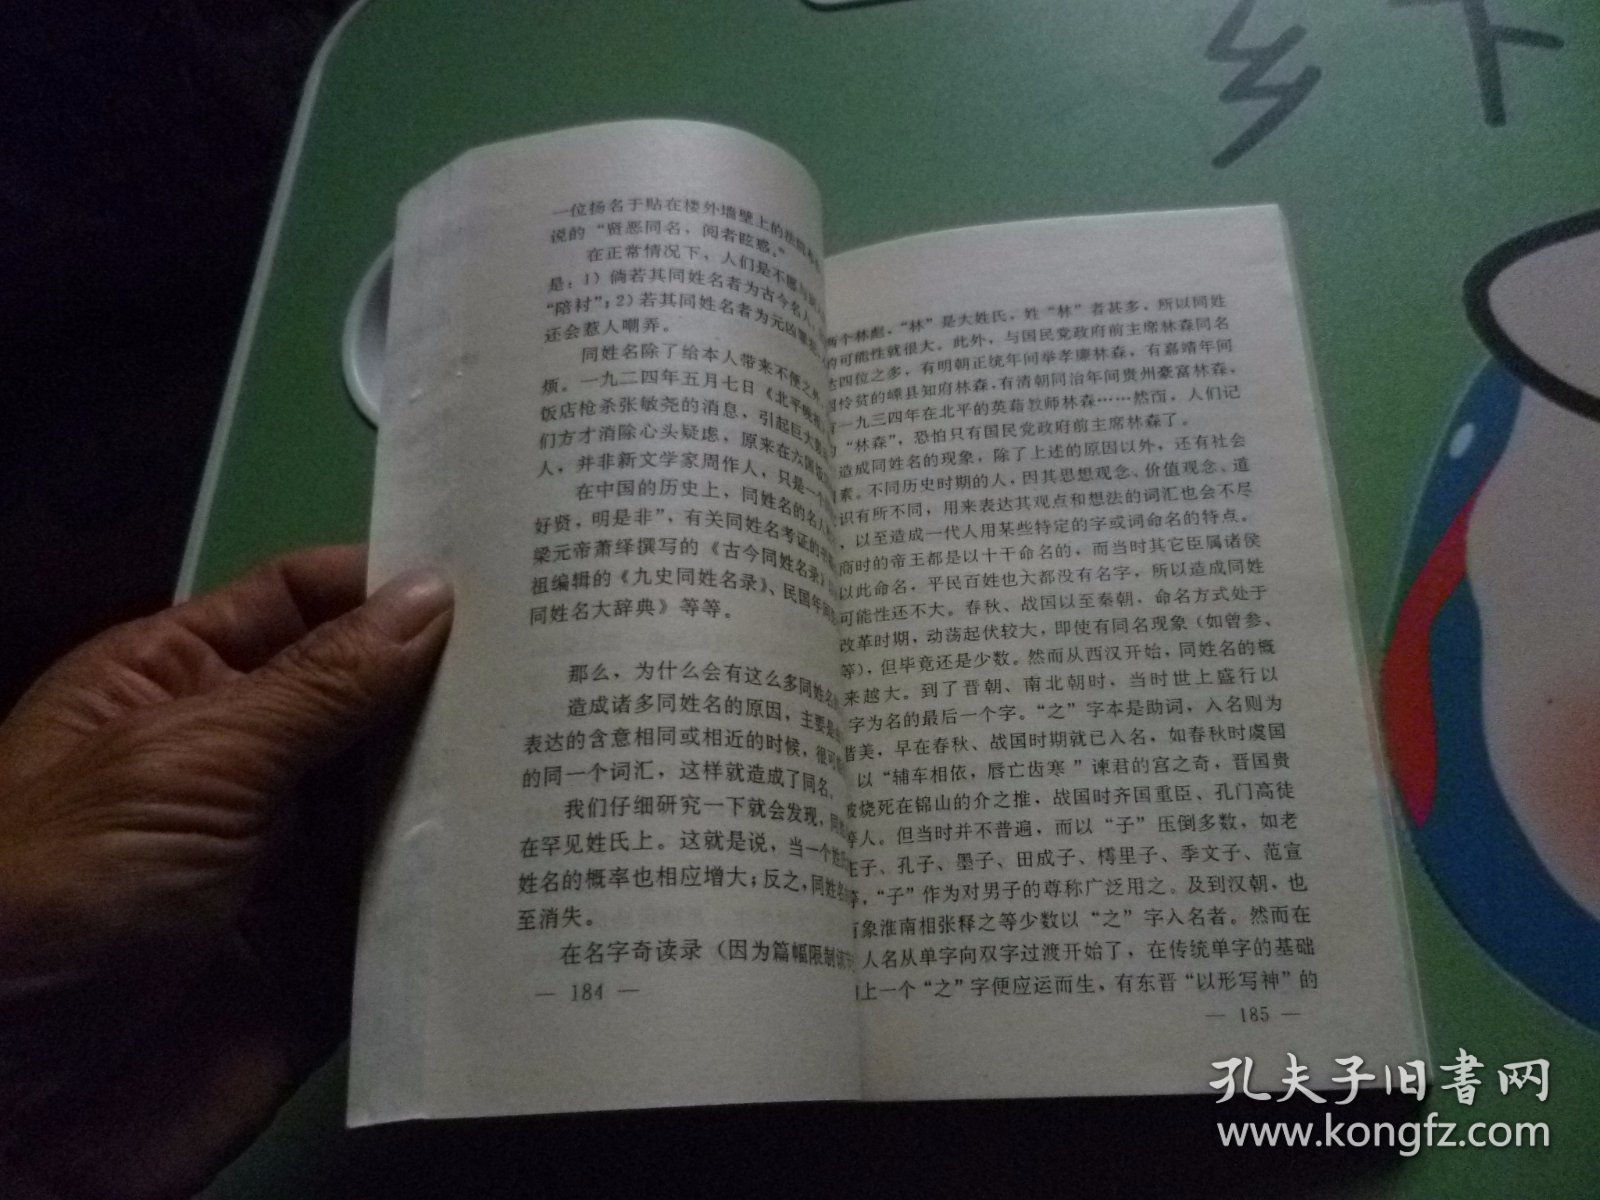 一位扬名于贴在楼外墙壁上的法
说的“贤恶同名，阅者眩惑。”
在正常情况下，人们是不愿与
是：1）倘若其同姓名者为古今名人，
“陪衬”；2）若其同姓名者为元凶
还会惹人嘲弄。
同姓名除了给本人带来不便之外，
烦。一九二四年五月七日《北平晚报》
饭店枪杀张敏尧的消息，引起巨大
们方才消除心头疑虑，原来在六国饭
人，并非新文学家周作人，只是一个
在中国的历史上，同姓名的名人
好贤，明是非”，有关同姓名考证的书
梁元帝萧绎撰写的《古今同姓名录》
祖编辑的《九史同姓名录》、民国年间
同姓名大辞典》等等。
那么，为什么会有这么多同姓名
造成诸多同姓名的原因，主要是
表达的含意相同或相近的时候，很可能
的同一个词汇，这样就造成了同名。
我们仔细研究一下就会发现，同
在罕见姓氏上。这就是说，当一个姓
姓名的概率也相应增大；反之，同姓名
至消失。
在名字奇读录（因为篇幅限制
— 184 —
两个林彪，“林”是大姓氏，姓“林”者甚多，所以同姓
的可能性就很大。此外，与国民党政府前主席林森同名
达四位之多，有明朝正统年间举孝廉林森，有嘉靖年间
怜贫的嵊县知府林森，有清朝同治年间贵州豪富林森，
有一九三四年在北平的英藉教师林森……然而，人们记
“林森”，恐怕只有国民党政府前主席林森了。
造成同姓名的现象，除了上述的原因以外，还有社会
素。不同历史时期的人，因其思想观念、价值观念、道
识有所不同，用来表达其观点和想法的词汇也会不尽
，以至造成一代人用某些特定的字或词命名的特点。
商时的帝王都是以十干命名的，而当时其它臣属诸侯
以此命名，平民百姓也大都没有名字，所以造成同姓
可能性还不大。春秋、战国以至秦朝，命名方式处于
改革时期，动荡起伏较大，即使有同名现象（如曾参、
等），但毕竟还是少数。然而从西汉开始，同姓名的概
来越大。到了晋朝、南北朝时，当时世上盛行以
字为名的最后一个字。“之”字本是助词，入名则为
谐美，早在春秋、战国时期就已入名，如春秋时虞国
以“辅车相依，唇亡齿寒”谏君的宫之奇，晋国贵
被烧死在锦山的介之推，战国时齐国重臣、孔门高徒
等人。但当时并不普遍，而以“子”压倒多数，如老
庄子、孔子、墨子、田成子、樗里子、季文子、范宣
等，“子”作为对男子的尊称广泛用之。及到汉朝，也
有象淮南相张释之等少数以“之”字入名者。然而在
人名从单字向双字过渡开始了，在传统单字的基础
上一个“之”字便应运而生，有东晋“以形写神”的
— 185 —
孔夫子旧书网
www.kongfz.com